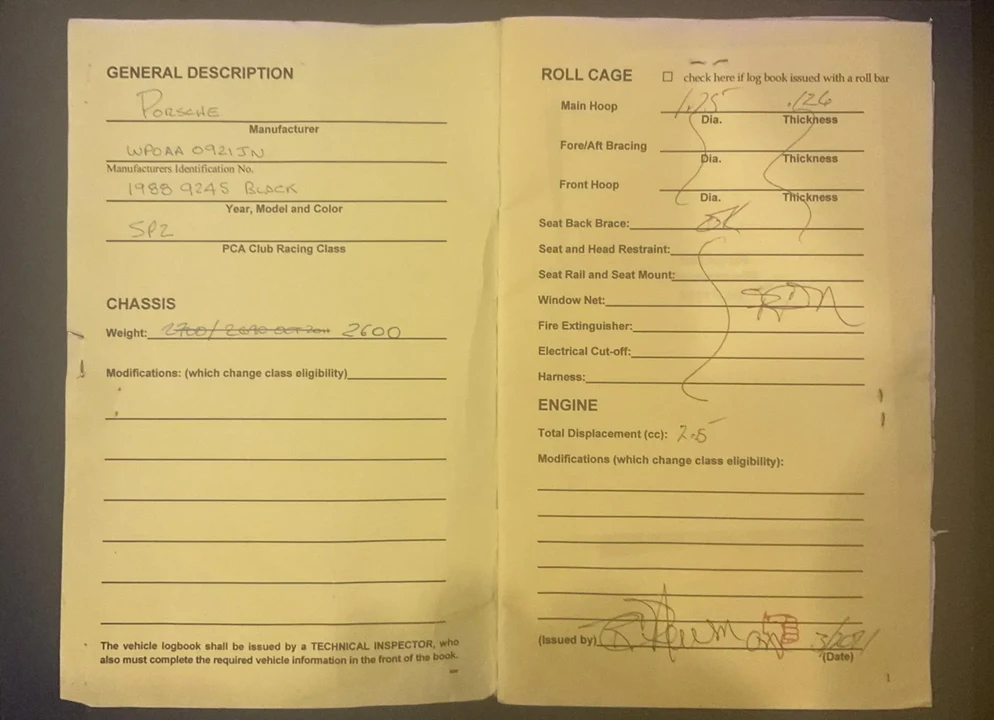 GENERAL DESCRIPTION
PORSCHE
Manufacturer
WPOAA 0921JN
Manufacturers Identification No.
1988 924S BLACK
Year, Model and Color
SP2
PCA Club Racing Class
CHASSIS
Weight: 2700/ 2690 OCT 2011 2600
Modifications: (which change class eligibility)
The vehicle logbook shall be issued by a TECHNICAL INSPECTOR, who
also must complete the required vehicle information in the front of the book.
ROLL CAGE check here if log book issued with a roll bar
Main Hoop 1.75 .126
Dia. Thickness
Fore/Aft Bracing
Dia. Thickness
Front Hoop
Dia. Thickness
Seat Back Brace: OK
Seat and Head Restraint:
Seat Rail and Seat Mount:
Window Net:
Fire Extinguisher:
Electrical Cut-off:
Harness:
ENGINE
Total Displacement (cc): 2.5
Modifications (which change class eligibility):
(Issued by)
(Date)
1